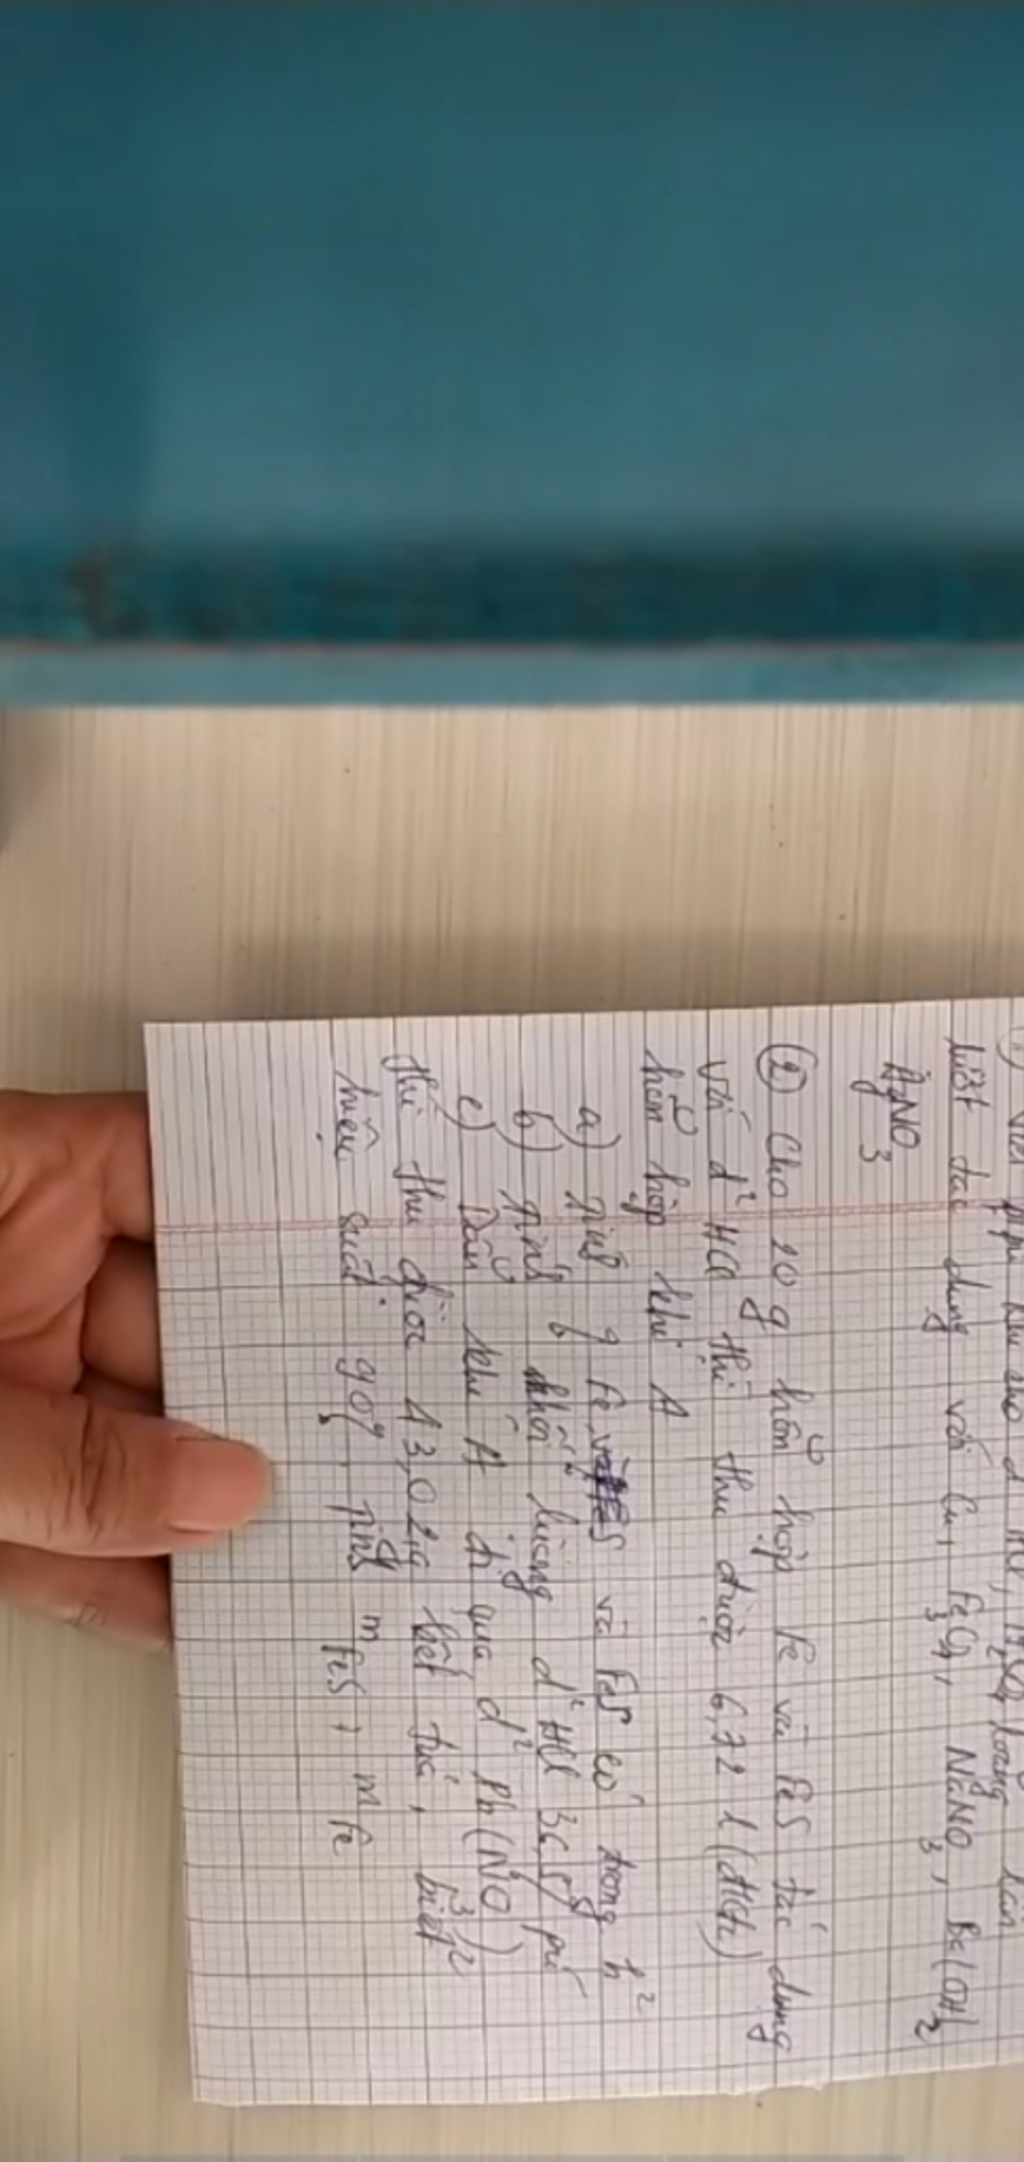 Viết ptpư khi cho d² HCl, H₂SO₄ loãng lần
lượt tác dụng với Cu, Fe₃O₄, NaNO₃, Ba(OH)₂
AgNO₃
② Cho 20 g hỗn hợp Fe và FeS tác dụng
với d² HCl thì thu được 6,72 l (đktc)
hỗn hợp khí A
a) Tính % Fe và FeS có trong h²
b) Tính khối lượng d² HCl 36,5% pư
c) Dẫn khí A đi qua d² Pb(NO₃)₂
thì thu được 43,02g kết tủa, biết
hiệu suất 90% tính m FeS, m Fe